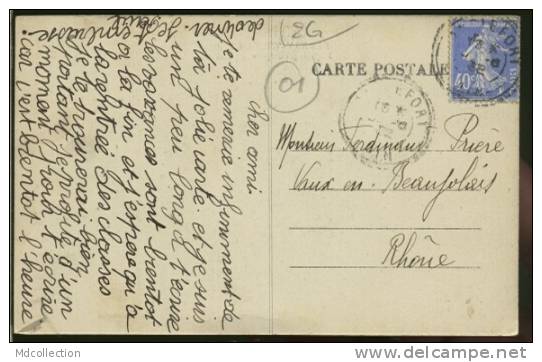 2G
01
CARTE POSTALE
LEFORT
40c
EFORT
Monsieur Ferdinand Prière
Vaux en Beaujolais
Rhône
cher ami
je te remercie infinimment de
ta jolie carte et je suis
un peu long à t'ecrire
les vacances sont bientot
à la fin et j'espere qu'à
la rentrée des classes
je te trouverai bien
portant je profite d'un
moment pour t'ecrire
car c'est bientot l'heure
de
Mdcollection
http://www.delcampe.net